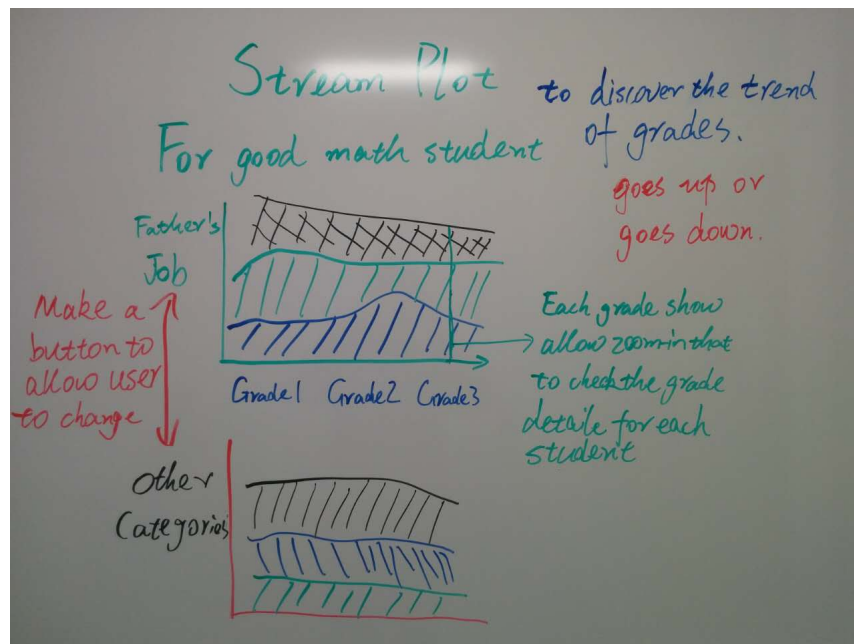 Stream Plot
For good math student
to discover the trend
of grades.
goes up or
goes down.
Father's
Job
Make a
button to
allow user
to change
Grade1 Grade2 Grade3
Each grade show
allow zoomin that
to check the grade
detaile for each
student
Other
Categories